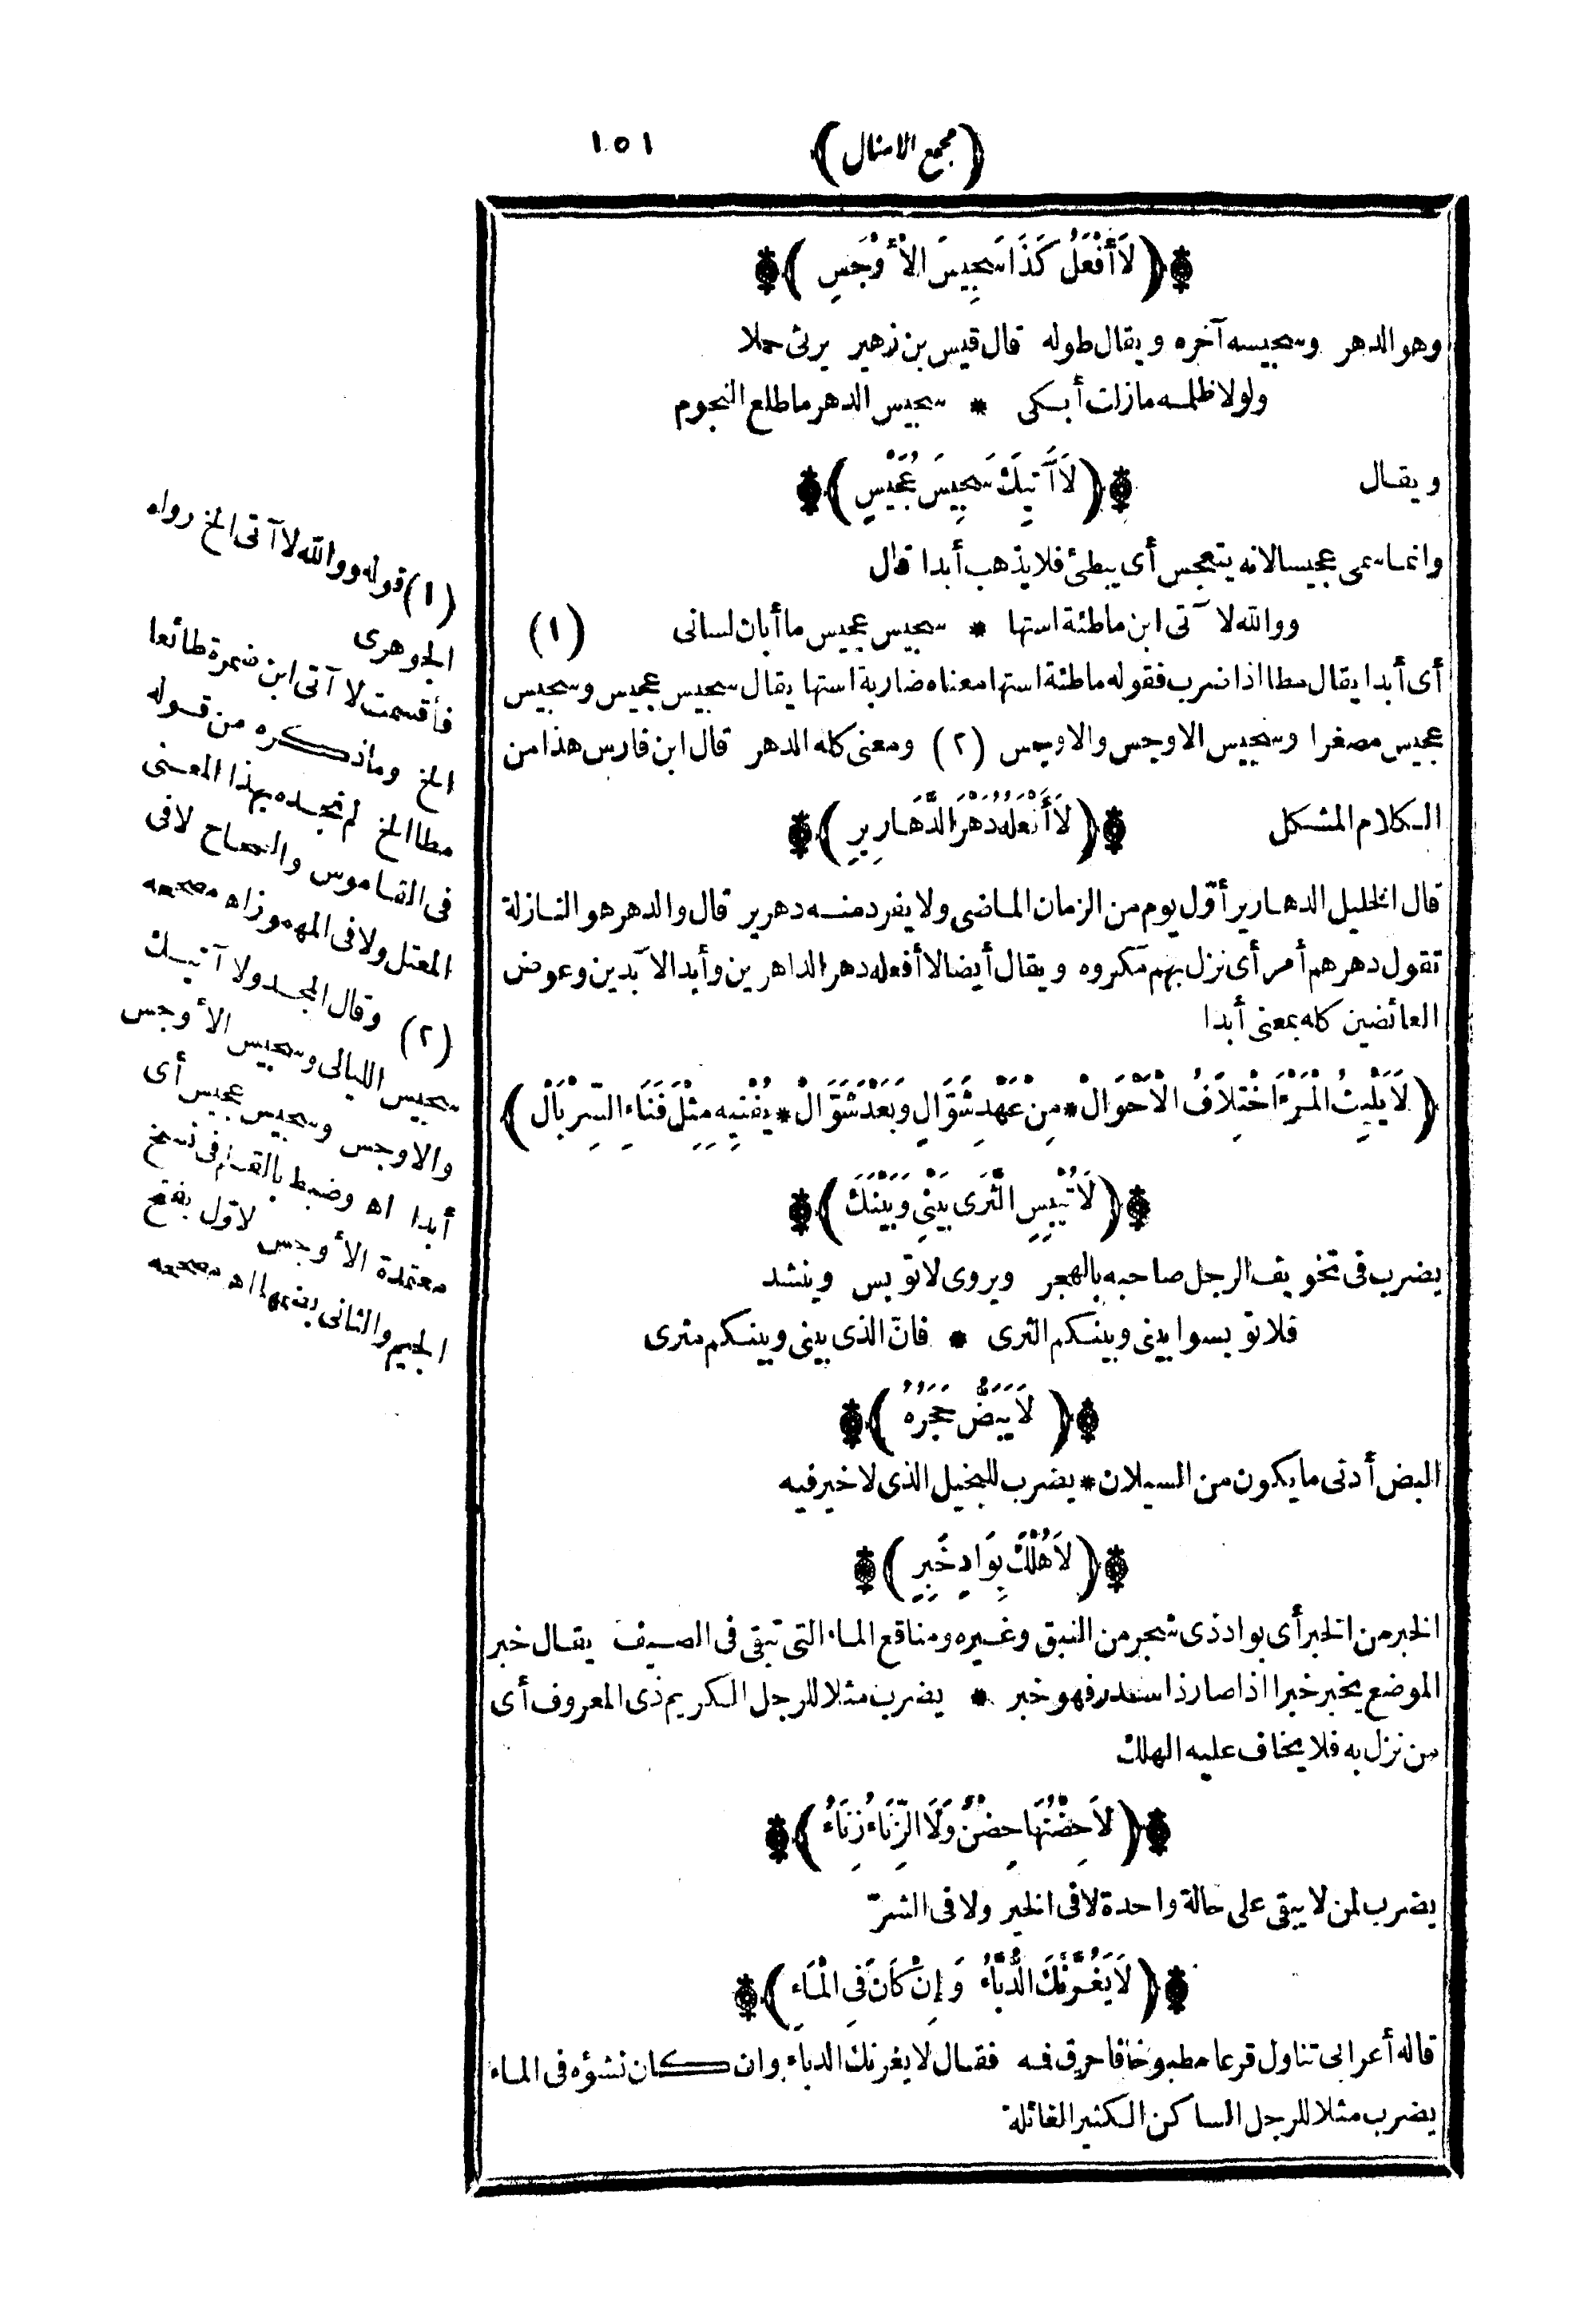 (مجمع الامثال) ١٥١
(لَا أَفْعَلُ كَذَا سَجِيسَ الْأَوْجَسِ)
وهو الدهر وسجيسه آخره ويقال طوله قال قيس بن زهير يرثى حملا
ولولا ظلمه مازلت أبكى * سجيس الدهر ماطلع النجوم
ويقال (لَا آتِيكَ سَجِيسَ عُجَيْسٍ)
وانما سمى عجيسا لانه يتعجس أى يبطئ فلا يذهب أبدا قال
ووالله لا آتى ابن ماطئة استها * سجيس عجيس ما أبان لسانى (١)
أى أبدا يقال مطا اذا ضرب فقوله ماطئة استها معناه ضاربة استها يقال سجيس عجيس وسجيس
عجيس مصغرا وسجيس الاوجس والاوجس (٢) ومعنى كله الدهر قال ابن فارس هذا من
الكلام المشكل (لَا أَفْعَلُهُ دَهْرَ الدَّهَارِيرِ)
قال الخليل الدهارير أوّل يوم من الزمان الماضى ولا يفرد منه دهرير قال والدهر هو النازلة
تقول دهرهم أمر أى نزل بهم مكروه ويقال أيضا لا أفعله دهر الداهرين وأبد الآبدين وعوض
العائضين كله بمعنى أبدا
(لَا يَلْبَثُ الْمَرْءَ اخْتِلَافُ الْأَحْوَالْ * مِنْ عَهْدِ شَوَّالٍ وَبَعْدَ شَوَّالْ * يُفْنِيهِ مِثْلَ فَنَاءِ السِّرْبَالْ)
(لَا تُيْبِسِ الثَّرَى بَيْنِي وَبَيْنَكَ)
يضرب فى تخويف الرجل صاحبه بالهجر ويروى لا توبس وينشد
فلا توبسوا بينى وبينكم الثرى * فانّ الذى بينى وبينكم مثرى
(لَا يَبِضُّ حَجَرُهُ)
البض أدنى ما يكون من السيلان * يضرب للبخيل الذى لا خير فيه
(لَا هُلْكَ بِوَادٍ خَبِرٍ)
الخبر من الخبر أى بواد ذى شجر من النبق وغيره ومناقع الماء التى تبقى فى الصيف يقال خبر
الموضع يخبر خبرا اذا صار ذا سدر فهو خبر * يضرب مثلا للرجل الكريم ذى المعروف أى
من نزل به فلا يخاف عليه الهلك
(لَا حِضْنُهَا حِضْنٌ وَلَا الزِّنَاءُ زِنَاءُ)
يضرب لمن لا يبقى على حالة واحدة لا فى الخير ولا فى الشرّ
(لَا يَغُرَّنْكَ الدُّبَّاءُ وَإِنْ كَانَ فِى الْمَاءِ)
قاله أعرابى تناول قرعا مطبوخا فاحرق فمه فقال لا يغرنك الدباء وان كان نشؤه فى الماء
يضرب مثلا للرجل الساكن الكثير الغائلة
(١) قوله ووالله لا آتى الخ رواه
الجوهرى
فأقسمت لا آتى ابن ضمرة طائعا
الخ وماذكره من قوله
مطا الخ لم نجده بهذا المعنى
فى القاموس والصحاح لا فى
المعتل ولا فى المهموز اه مصححه
(٢) وقال المجد ولا آتيك
سجيس الليالى وسجيس الأوجس
والاوجس وسجيس عجيس أى
أبدا اه وضبط بالقلم فى نسخ
معتمدة الأوجس لاول بفتح
الجيم والثانى بضمها اه مصححه